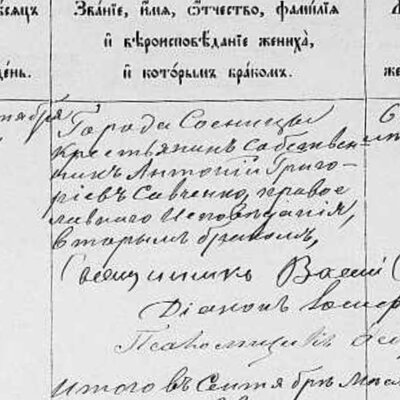 сяцъ
день.
Званіе, имя, отчество, фамилія
и вѣроисповѣданіе жениха,
и которымъ бракомъ.
же
тября
Города Сосницы
крестьянинъ собствен-
никъ Антоній Григо-
ріевъ Савченко, право-
славнаго исповѣданія,
вторымъ бракомъ,
Священникъ Васи
Діаконъ
Псаломщикъ
Итого въ Сентябрѣ